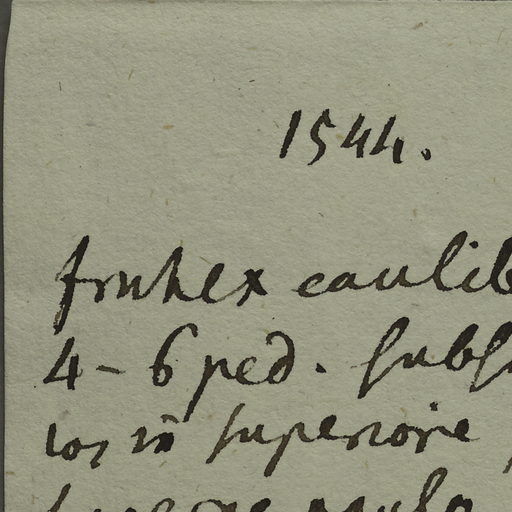 1544.
frutex caulib
4-6 ped. subs
ios in superiore